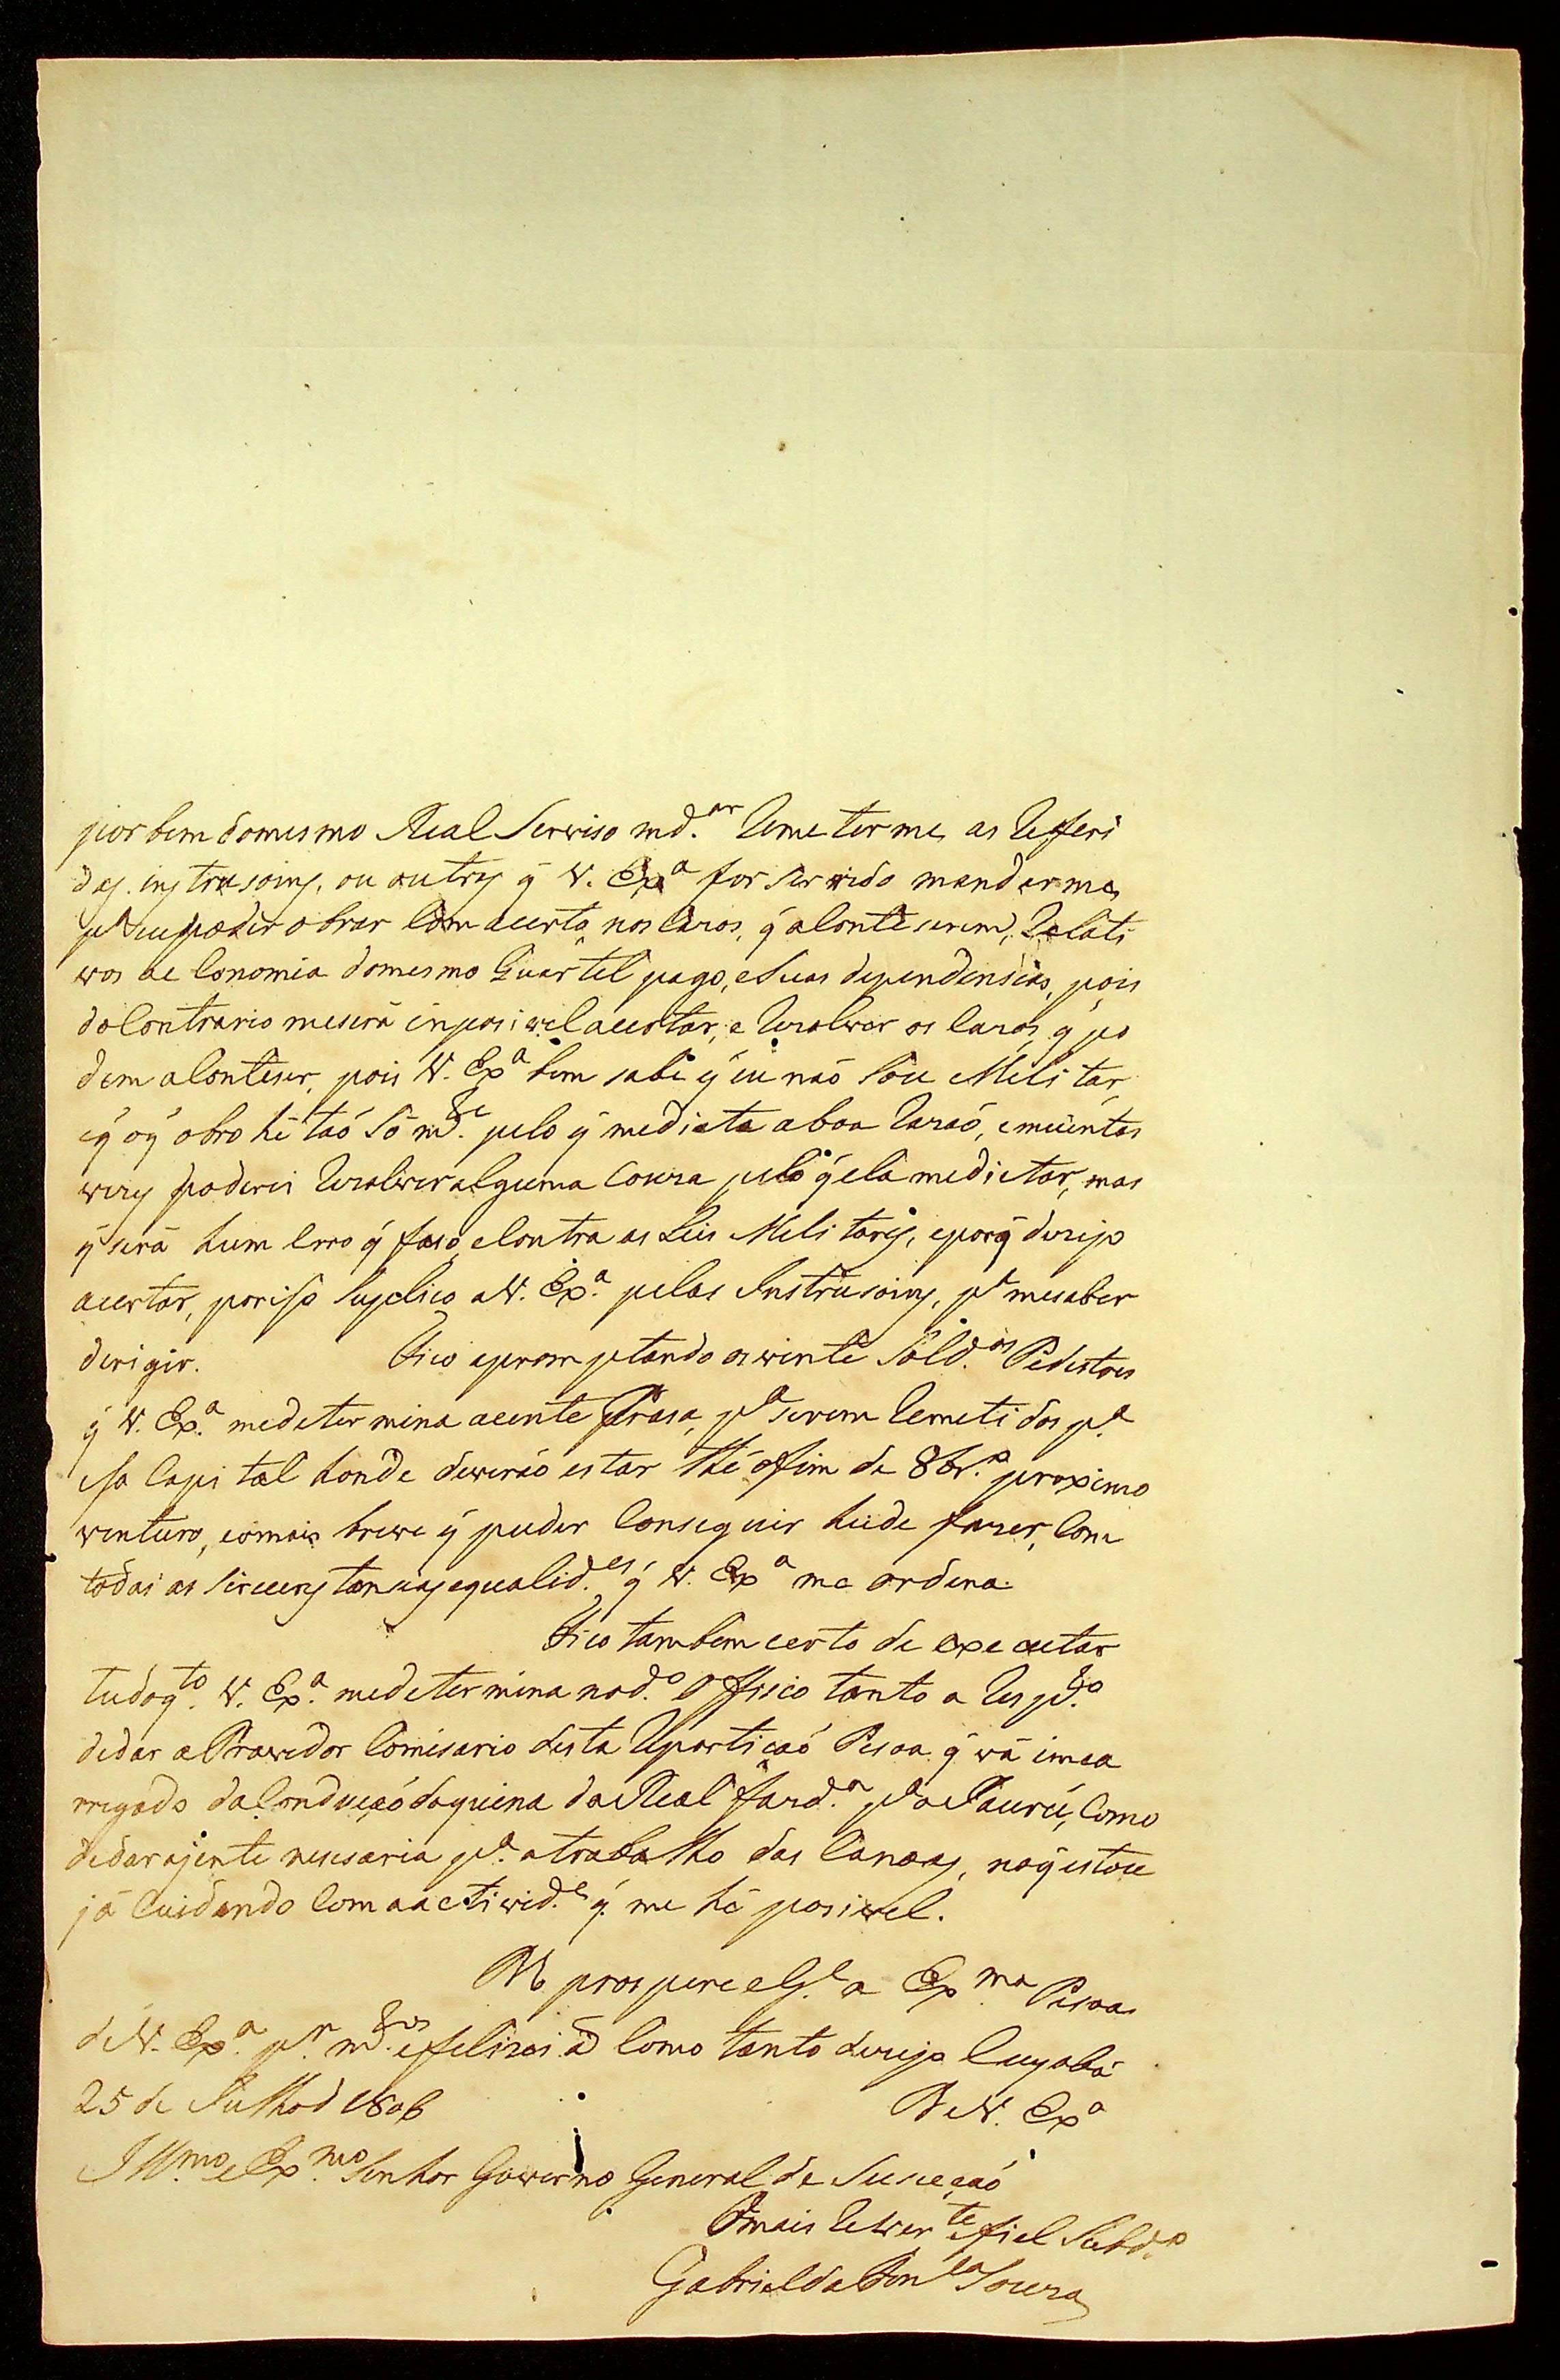 por bem domesmo Real Serviso md.ar Remeterme, as Referi
das instrusoins, ou outras q̃ V. Exa for servido mandarme,
pa eu poder obrar Com acerto, nos Cazos, q̃ aConteserem, Relati
vos a eConomia domesmo Quartel pago, eSuas dependensias, pois
doContrario meserá inposivel acertar, e Rezolver os Cazos, q̃ po
dem aConteser, pois V. Exa bem sabe q̃ eu naõ Sou Melitar,
eq̃ oq̃ obro hé taõ Só mde. pelo q̃ medicta aboa Razaõ, emuintas
vezes poderei Rezolver alguma Couza pelo q̃ela medictar, mas
q̃ será hum Erro q̃ faso, eContra as Leis Melitares, eporq̃ dezejo
acertar, poriso Suplico aV. Exa. pelas Instrusoins, pa mesaber
derigir. Fico aprom ptando os vinte Sold.os Pedestres
q̃ V. Exa. medetermina asente Prasa, pa serem Remetidos pa.
esa Capital honde deveráo estar thé ofim de 8br.o proximo
venturo, eomais breve q̃ puder Conseguir heide fazer, Com
todas as Sircunstansias equalid.es q̃ V. Exa me ordena.
Fico tambem certo de executar
tudoqto. V. Exa. medetermina nod.o Offisio tanto a Respto.
dedar a Provedor Comisario desta Repartiçaõ Pesoa q̃ vá inca
rregado daConduçaõ daquina da Real Fazd.a pa o Paurú, Como
dedar ajente nesesaria pa. atrabalho das Canoas, noq̃ estou
já Cuidando Com aactivid.e q̃ me hé posivel.
Ds prospere eGe. a Exma Pesoa
deV. Exa. pr. ms. efelizes ã Como tanto dezejo Cuyabá
25 de Julho d 1806 DeV. Exa
Illmo. e Exmo. Senhor Governo General de Suseçaõ
Omais Rever te efiel Subd.o
Gabriel da Fonca Souza